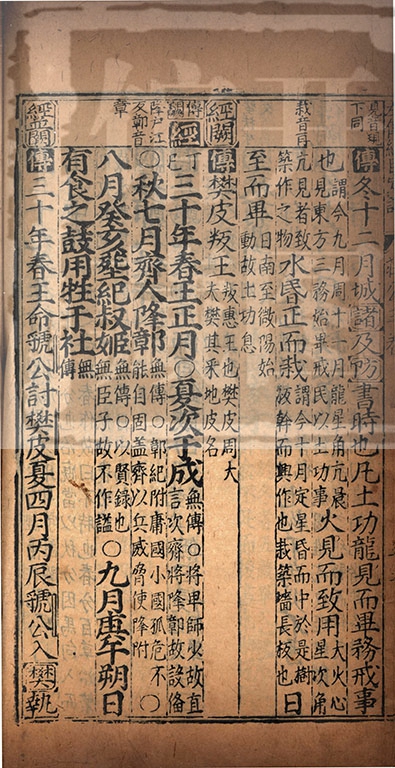 下同
傳冬十二月城諸及防書時也凡土功龍見而畢務戒事
謂今九月周十一月龍星角亢晨
也見東方三務始畢戒民以土功事
火見而致用
大火心
星次角
栽音再
亢見者致
築作之物
水昏正而栽
謂今十月定星昏而中於是樹
板幹而興作也栽築墻長板也
日
至而畢
日南至微陽始
動故土功息
經闕
傳樊皮叛王
叛惠王也樊皮周大
夫樊其采地皮名
傳闕
經
丁巳
三十年春王正月○夏次于成
無傳○將卑師少故直
言次齊將降鄣故設備
降戶江
反鄣音
章
○秋七月齊人降鄣
無傳○鄣紀附庸國小國孤危不
能自固蓋齊以兵威脅使降附
○
八月癸亥葬紀叔姬
無傳○以賢錄也
無臣子故不作謚
○九月庚午朔日
有食之鼓用牲于社
無傳
經闕
傳三十年春王命虢公討樊皮夏四月丙辰虢公入樊執